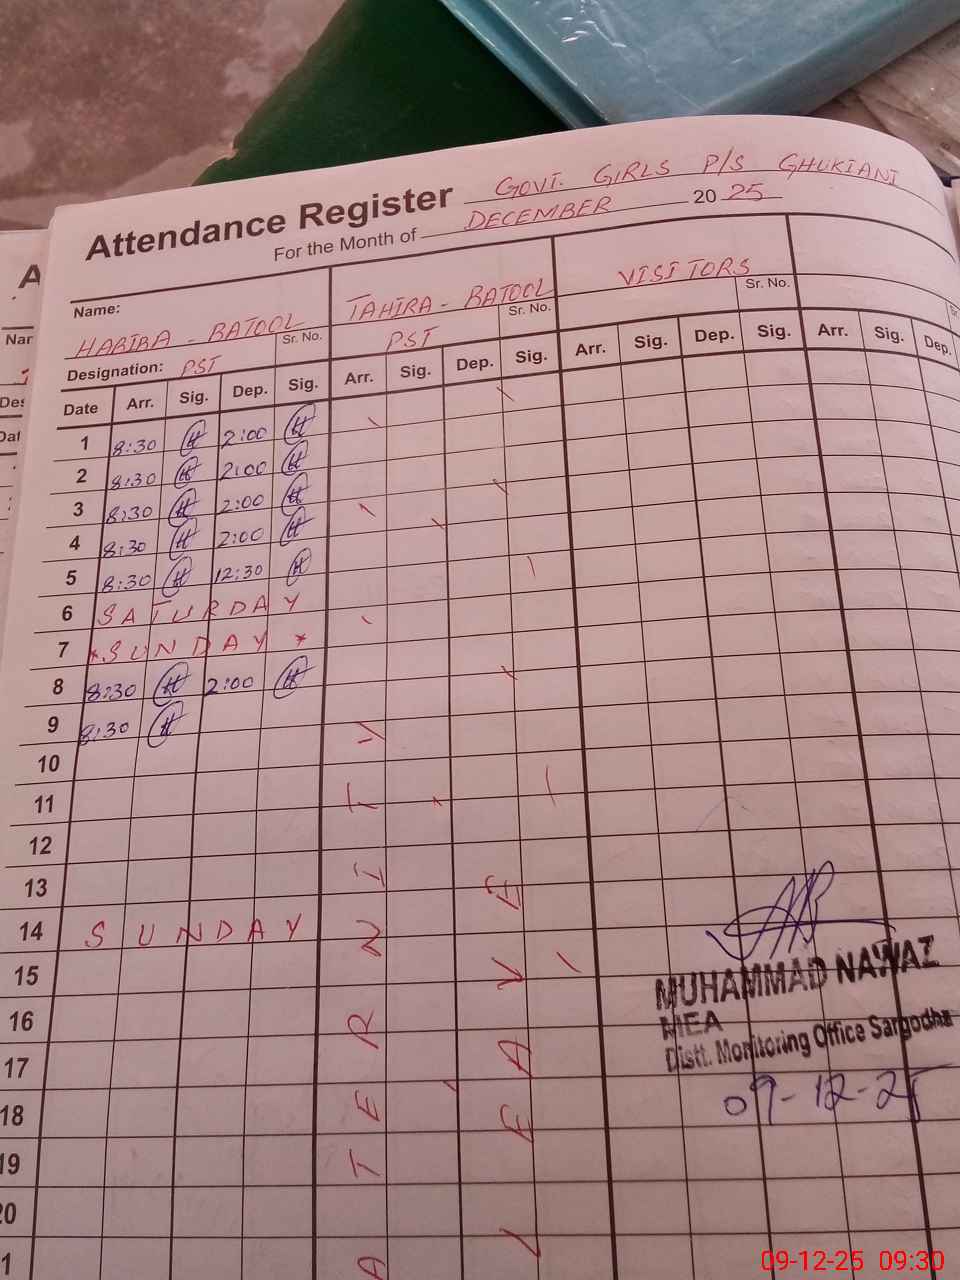 Attendance Register GOVT. GIRLS P/S GHUKIANI
For the Month of DECEMBER 20 25
Name:
HABIBA - BATOOL Sr. No.
TAHIRA - BATOOL Sr. No.
VISITORS Sr. No.
Designation: PST
PST
Date Arr. Sig. Dep. Sig. Arr. Sig. Dep. Sig. Arr. Sig. Dep. Sig. Arr. Sig. Dep.
1 8:30 H 2:00 H
2 8:30 H 2:00 H
3 8:30 H 2:00 H
4 8:30 H 2:00 H
5 8:30 H 12:30 H
6 SATURDAY
7 *SUNDAY *
8 8:30 H 2:00 H
9 8:30 H
10
11
12
13
14 SUNDAY
15
16
17
18
19
20
1
ATERNITY
LEAVE
MUHAMMAD NAWAZ
MEA
Distt. Monitoring Office Sargodha
09-12-25
09-12-25 09:30